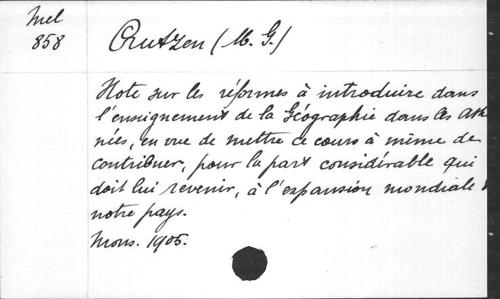 Mel
858
Crutzen (M. G.)
Note sur les réformes à introduire dans
l'enseignement de la Géographie dans les Athé
nées, en vue de mettre ce cours à même de
contribuer, pour la part considérable qui
doit lui revenir, à l'expansion mondiale
notre pays.
Mons. 1905.